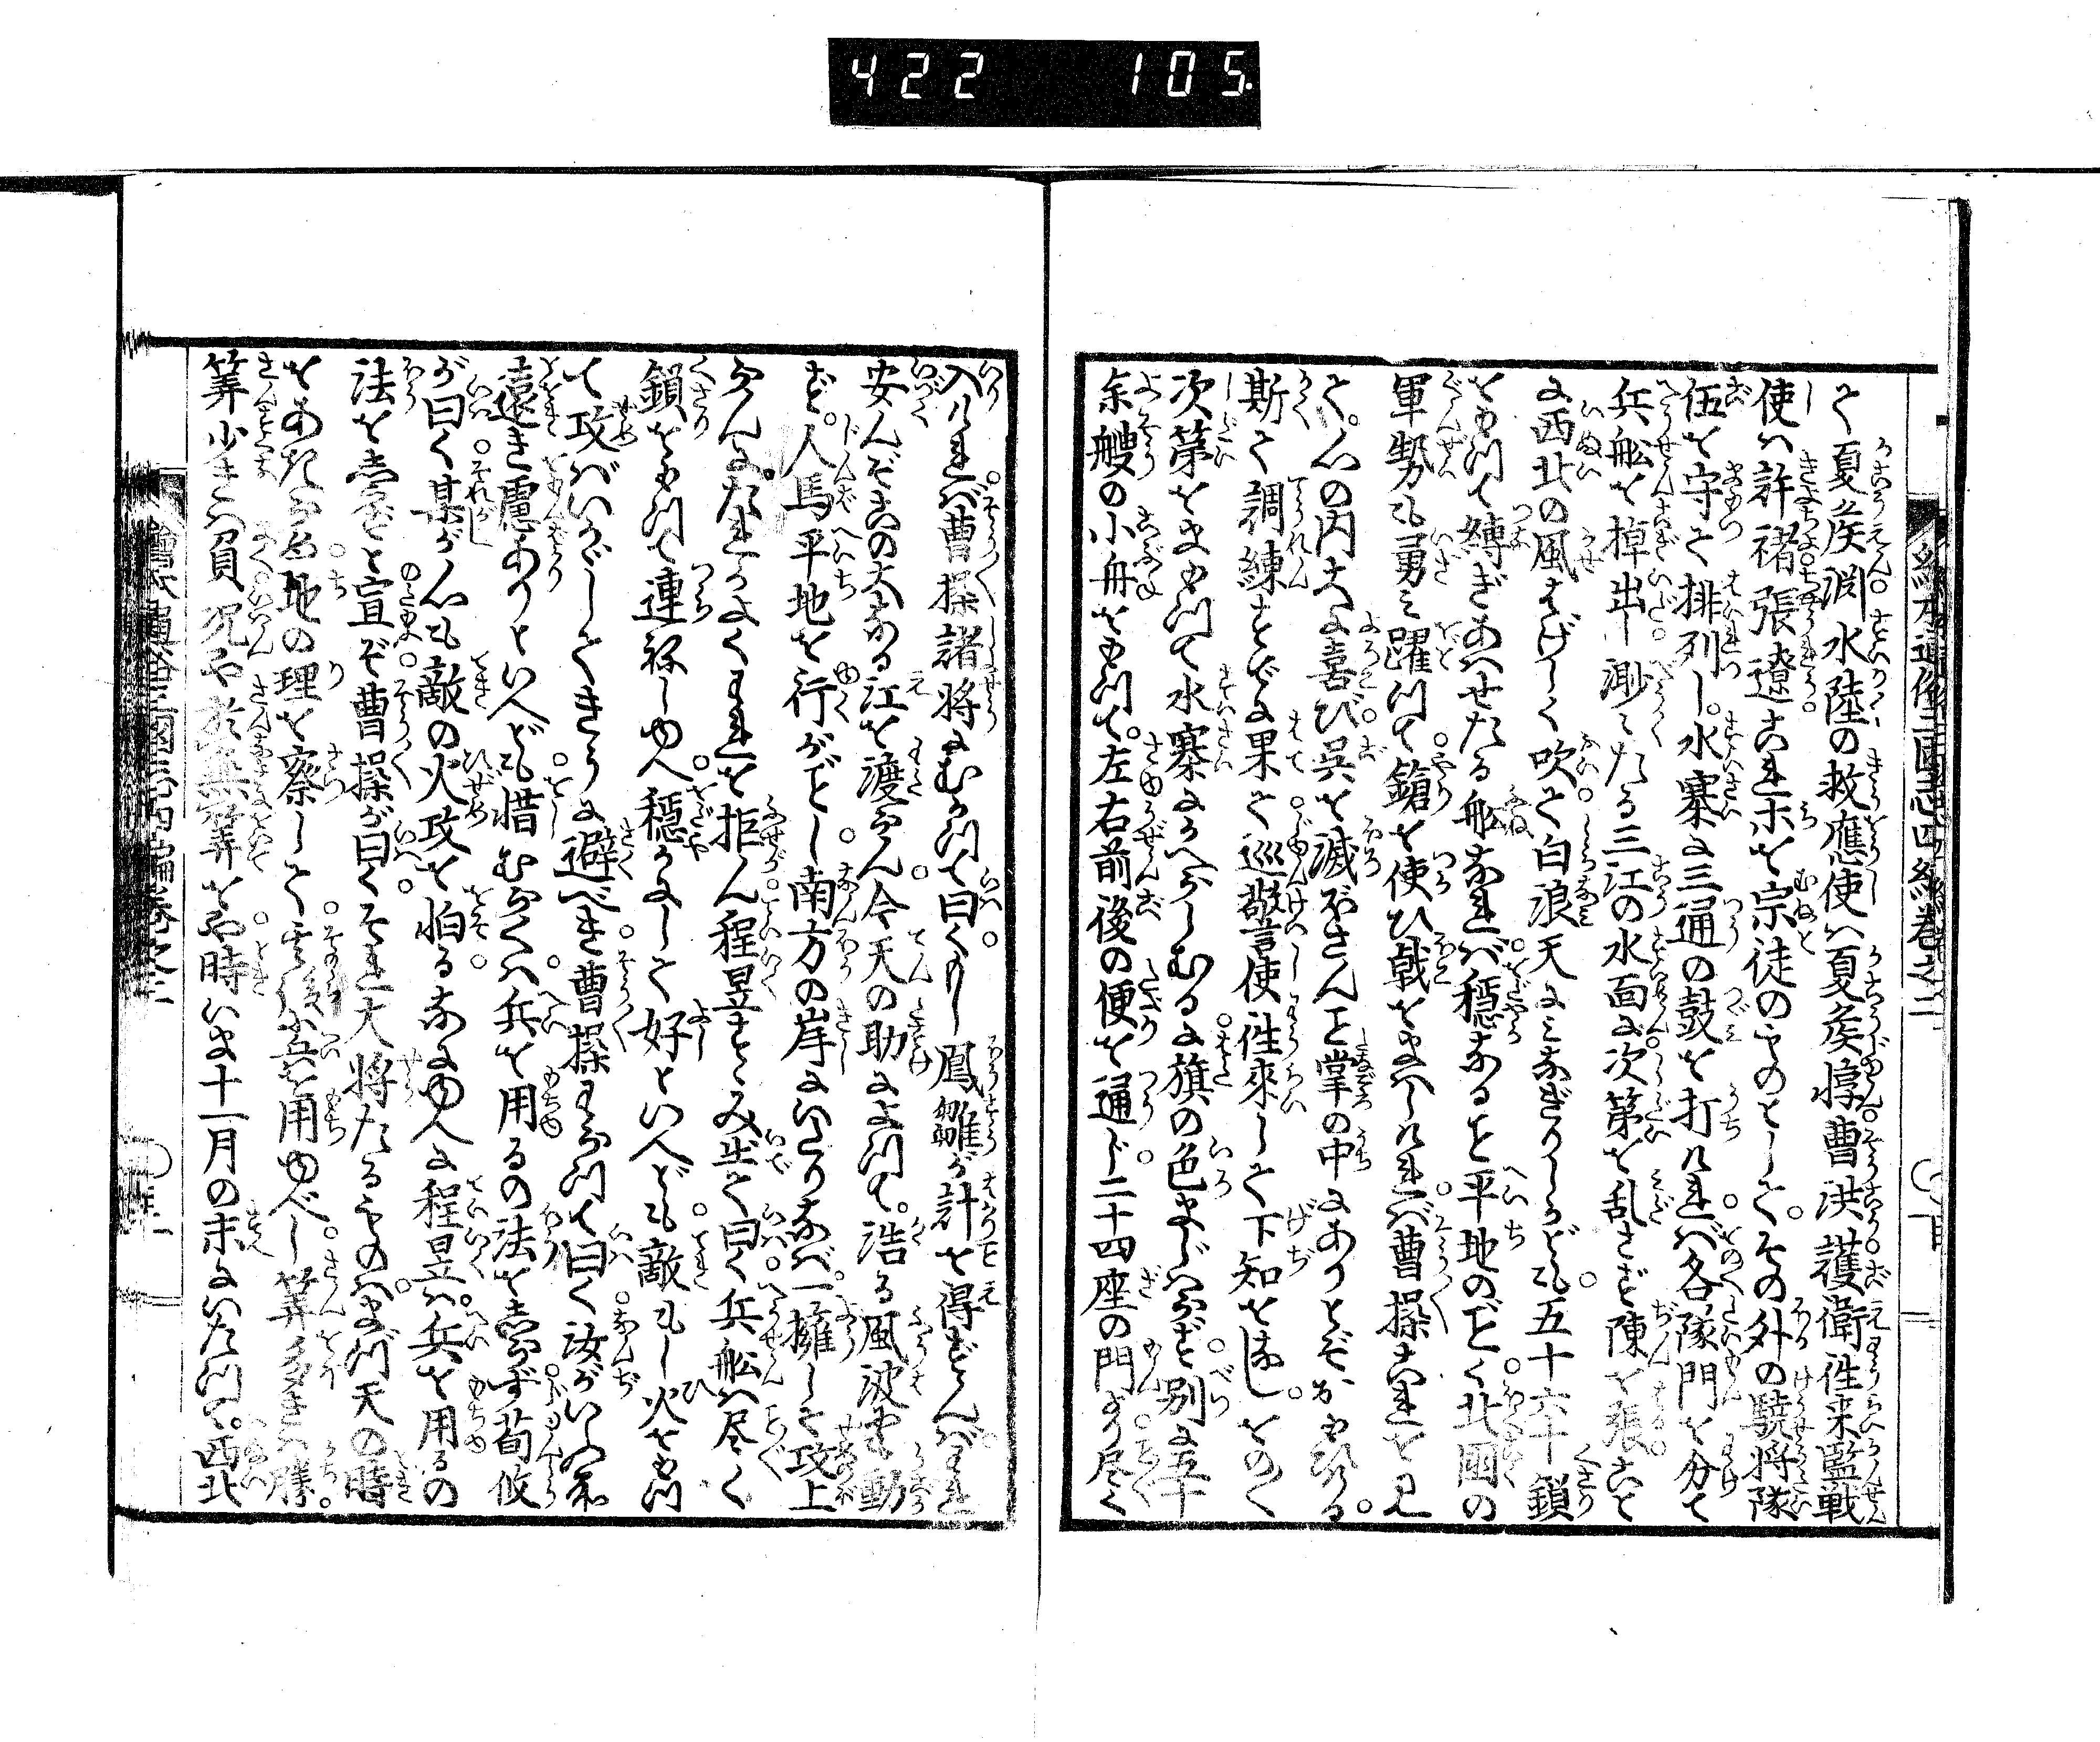 422 105
て夏侯淵水陸の救應使ハ夏侯惇曹洪護衛徃来監戦
使ハ許褚張遼これホを宗徒のものとして。その外の驍将隊
伍を守て排列し。水寨に三通の鼓を打けれバ各隊門を分て
兵舩を棹出し渺々たる三江の水面に次第を乱さず陳を張こと
に西北の風はげしく吹て白浪天にみなぎりしかども。五十六十鎖
をもつて縛ぎあハせたる舩なれバ穏なること平地のごとく北國の
軍勢も勇み躍つて鎗を使ひ戟をまハしけれバ曹操これを見
て。心の内大に喜び呉を滅ぼさんこと掌の中にありとぞおもひける。
斯て調練すでに果て巡警使徃來して下知をなしをのく
次第をまもつて水寨にかへらしむるに旗の色まじハらず別に五十
余艘の小舟をもつて。左右前後の便を通ド二十四座の門より尽く
入けれバ曹操諸将にむかつて曰くもし鳳雛が計を得ずんバわれ
安んぞこの大なる江を渡らん今天の助によつて。浩る風波にも動
ず。人馬平地を行がごとし南方の岸にいたりなバ。一擁して攻上
らんに。たれかよくこれを拒ん程昱すゝみ出て曰く兵舩ハ尽く
鎖をもつて連ねしゆへ穏かにして好といへども敵もし火をもつ
て攻バいかゞしてきうに避べき曹操わらつて曰く汝がいふ所
遠き慮ありといへども惜むらくハ兵を用るの法を志らず荀攸
が曰く某が心も敵の火攻を怕るなにゆへに程昱ハ兵を用るの
法を志らずと宣ぞ曹操が曰くそれ大将たるものハまづ天の時
をあきらめ地の理を察して其後兵を用ゆべし筭多きハ勝。
筭少きハ負况や於無筭をや時いま十一月の末にいたつて。西北